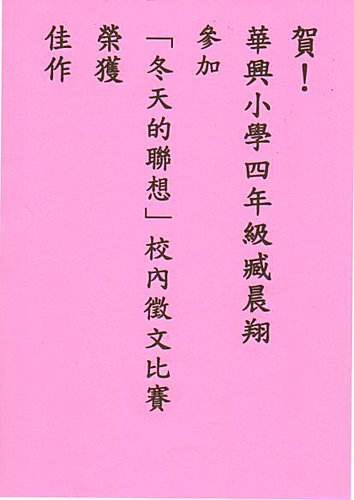 賀！
華興小學四年級臧晨翔
參加
「冬天的聯想」校內徵文比賽
榮獲
佳作